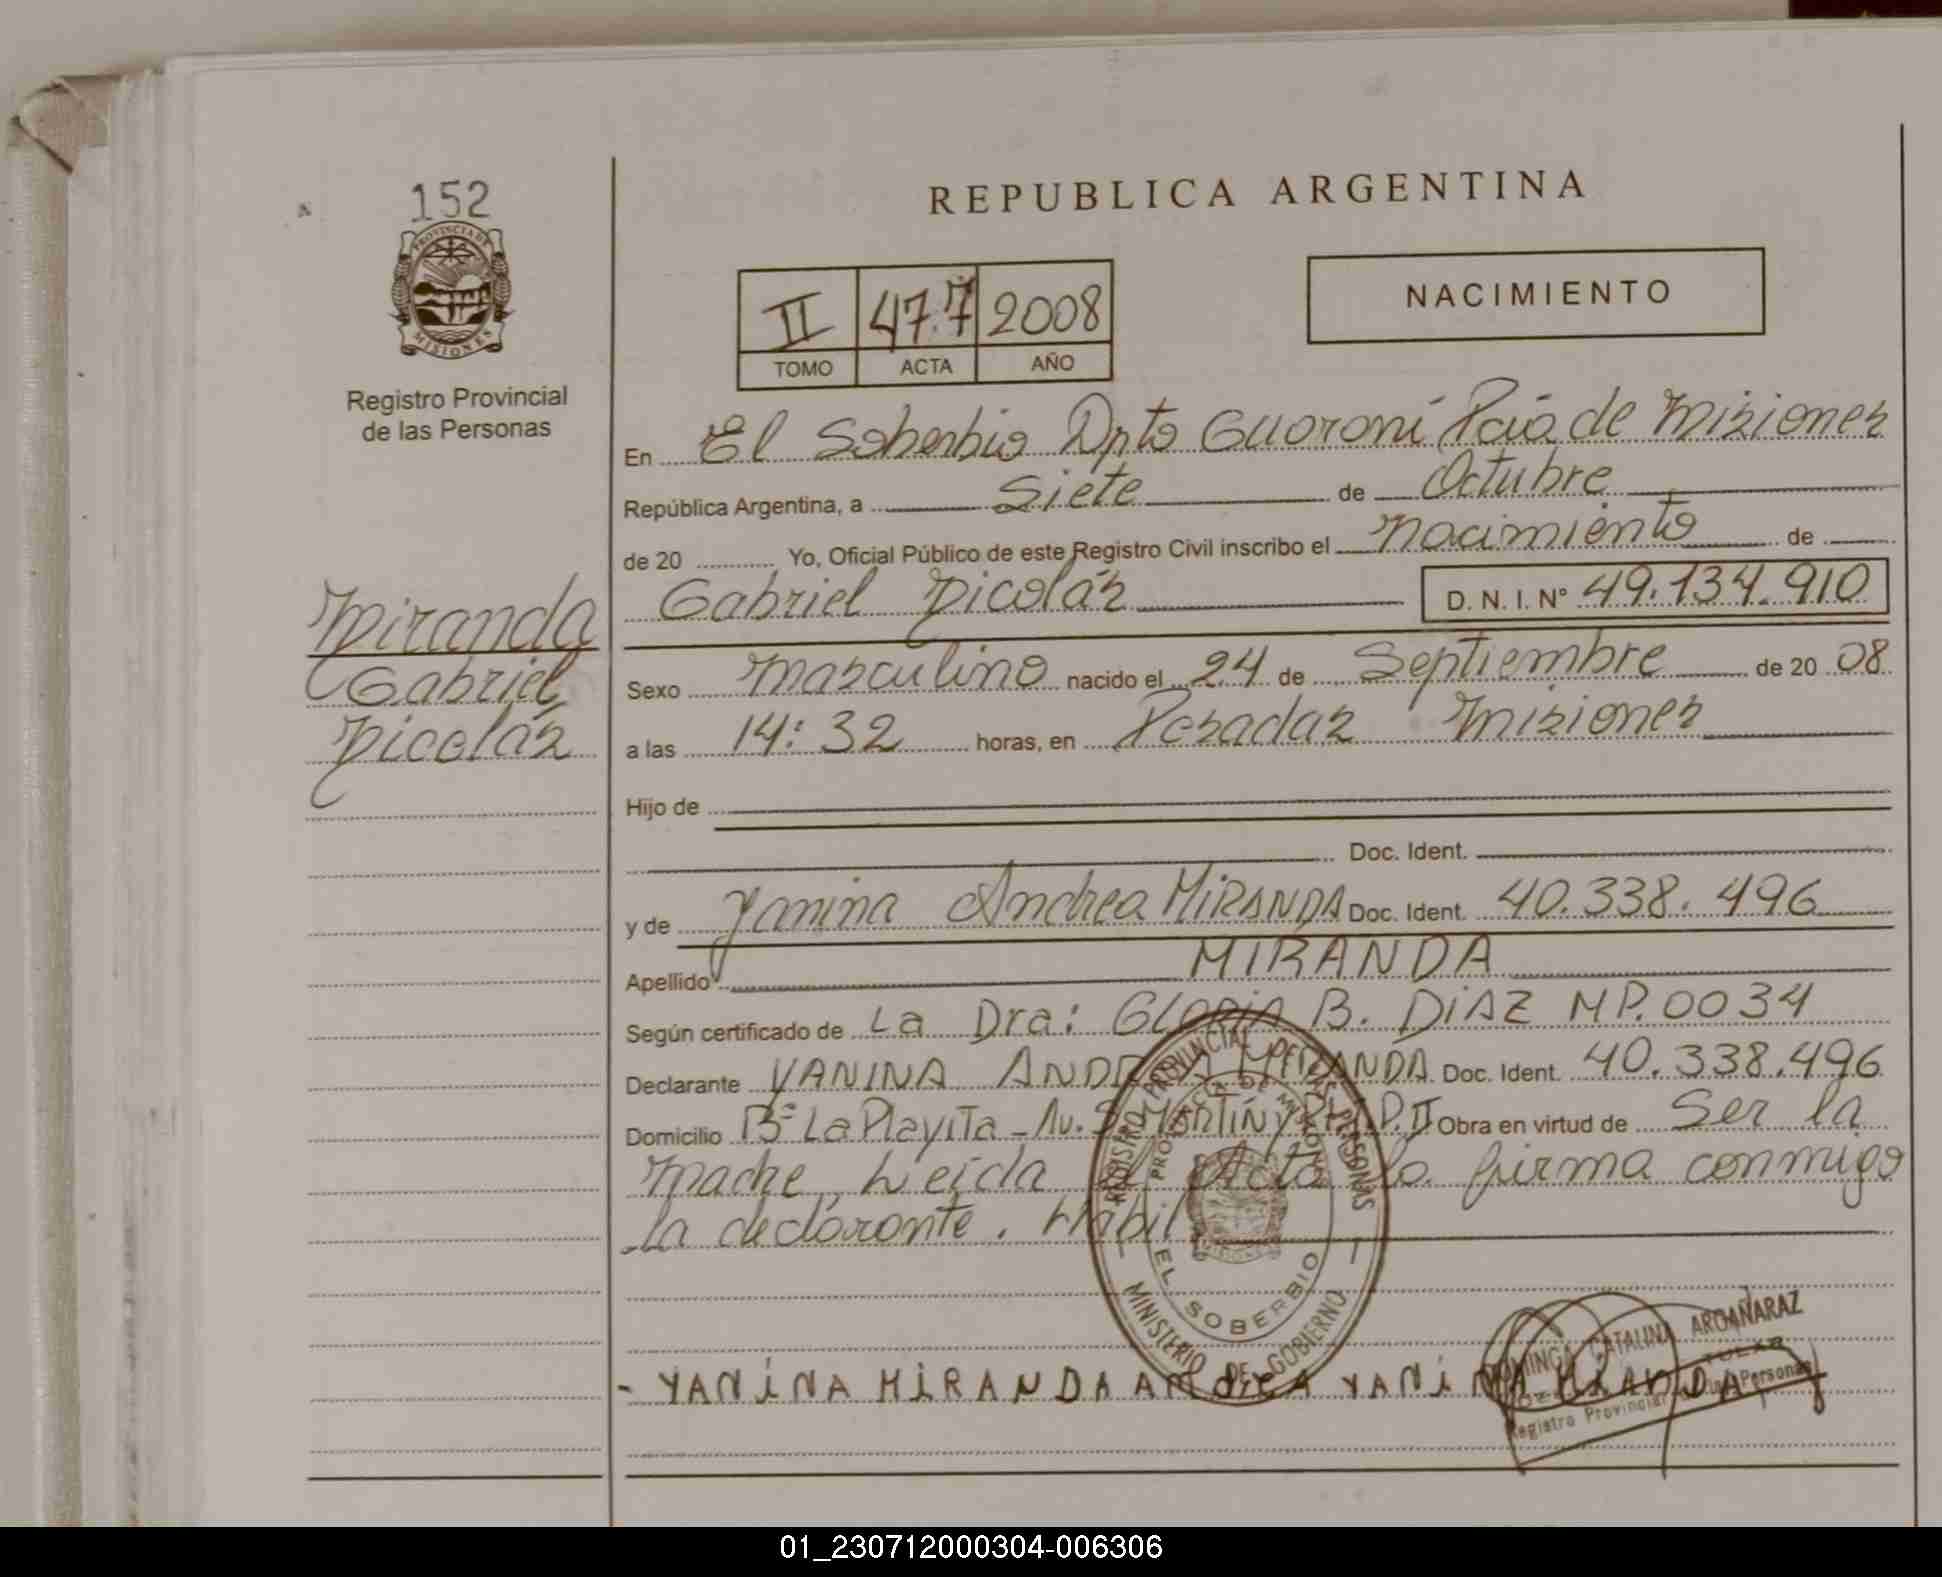 152
PROVINCIA DE
MISIONES
Registro Provincial
de las Personas
Miranda
Gabriel
Nicolás
REPUBLICA ARGENTINA
NACIMIENTO
II 477 2008
TOMO ACTA AÑO
En El Soberbio Dpto Guaraní Pcia de Misiones
República Argentina, a Siete de Octubre
de 20 Yo, Oficial Público de este Registro Civil inscribo el nacimiento de
Gabriel Nicolás D. N. I. N° 49.134.910
Sexo masculino nacido el 24 de Septiembre de 20 08
a las 14:32 horas, en Posadas Misiones
Hijo de
Doc. Ident.
y de Yanina Andrea MIRANDA Doc. Ident. 40.338.496
Apellido MIRANDA
Según certificado de La Dra: GLORIA B. DIAZ MP.0034
Declarante YANINA ANDREA MIRANDA Doc. Ident. 40.338.496
Domicilio B° La Playita - Av. S. Martín y P.II Obra en virtud de Ser la
madre, Leída el Acta la firma conmigo
la declarante. Habil
REGISTRO PROVINCIAL DE LAS PERSONAS
PROVINCIA DE MISIONES
EL SOBERBIO
MINISTERIO DE GOBIERNO
- YANINA MIRANDA ANDREA YANINA MIRANDA
DOMINGA CATALINA ARGAÑARAZ
Registro Provincial de las Personas
01_230712000304-006306